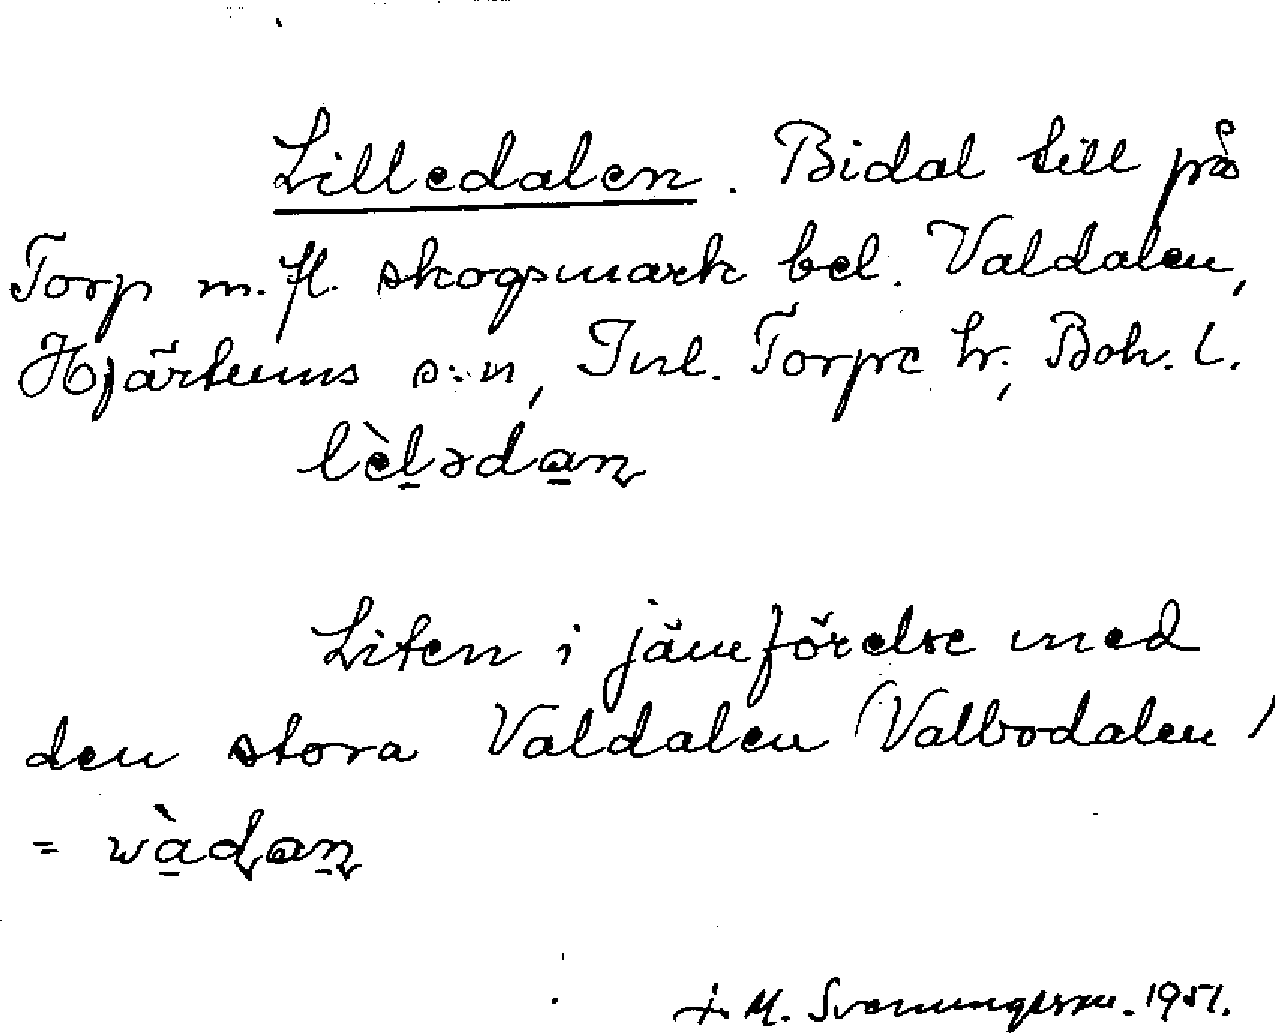 Lilledalen. Bidal till på
Torp m. fl. skogsmark bel. Valdalen,
Hjärtums s:n, Inl. Torpe hr, Boh. l.
lèl̠əda̠ɳ
Liten i jämförelse med
den stora Valdalen (Valbodalen)
= wà̠ɖaɳ̠
M. Svenungsson. 1951.